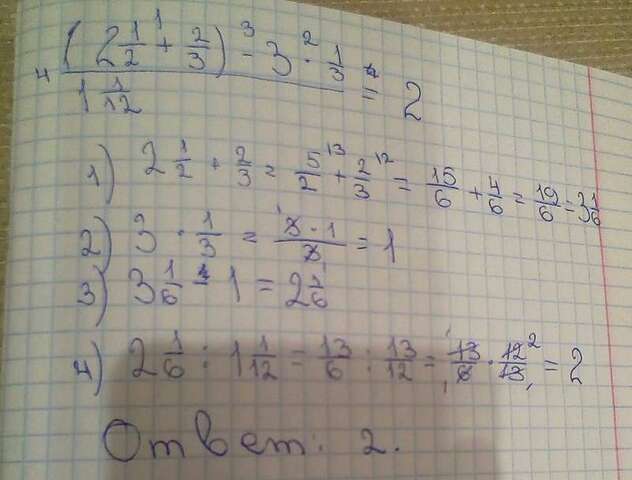 4 (2 1/2 +¹ 2/3) -³ 3 ·² 1/3 / 1 1/12 = 2
1) 2 1/2 + 2/3 = 5/2 ¹³ + 2/3 ¹² = 15/6 + 4/6 = 19/6 = 3 1/6
2) 3 · 1/3 = 3 · 1 / 3 = 1
3) 3 1/6 - 1 = 2 1/6
4) 2 1/6 : 1 1/12 = 13/6 : 13/12 = 13/6 · 12/13 = 2
Ответ: 2.